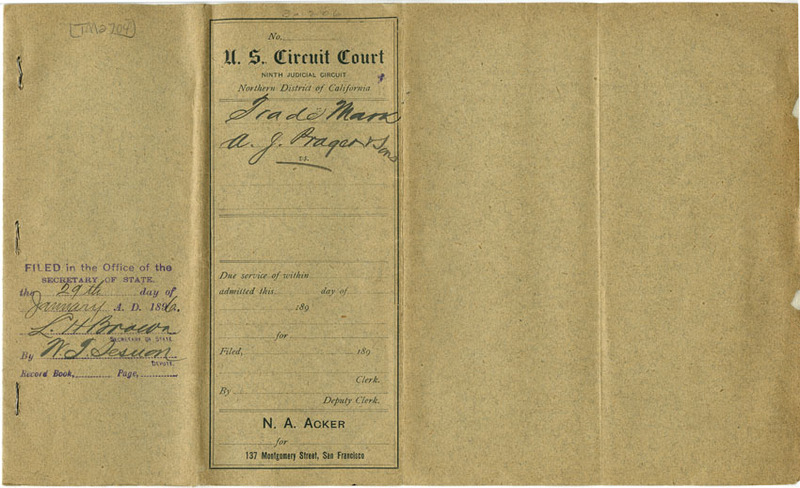 TM2704
FILED in the Office of the
SECRETARY OF STATE.
the 29th day of
January A. D. 1896.
L. H. Brown
SECRETARY OF STATE.
By W. T.
DEPUTY.
Record Book, Page,
No.
U. S. Circuit Court
NINTH JUDICIAL CIRCUIT
Northern District of California
Trade Mark
A. J. Prager & Sons
vs.
Due service of within
admitted this day of
189
for
Filed, 189
Clerk.
By
Deputy Clerk.
N. A. ACKER
for
137 Montgomery Street, San Francisco